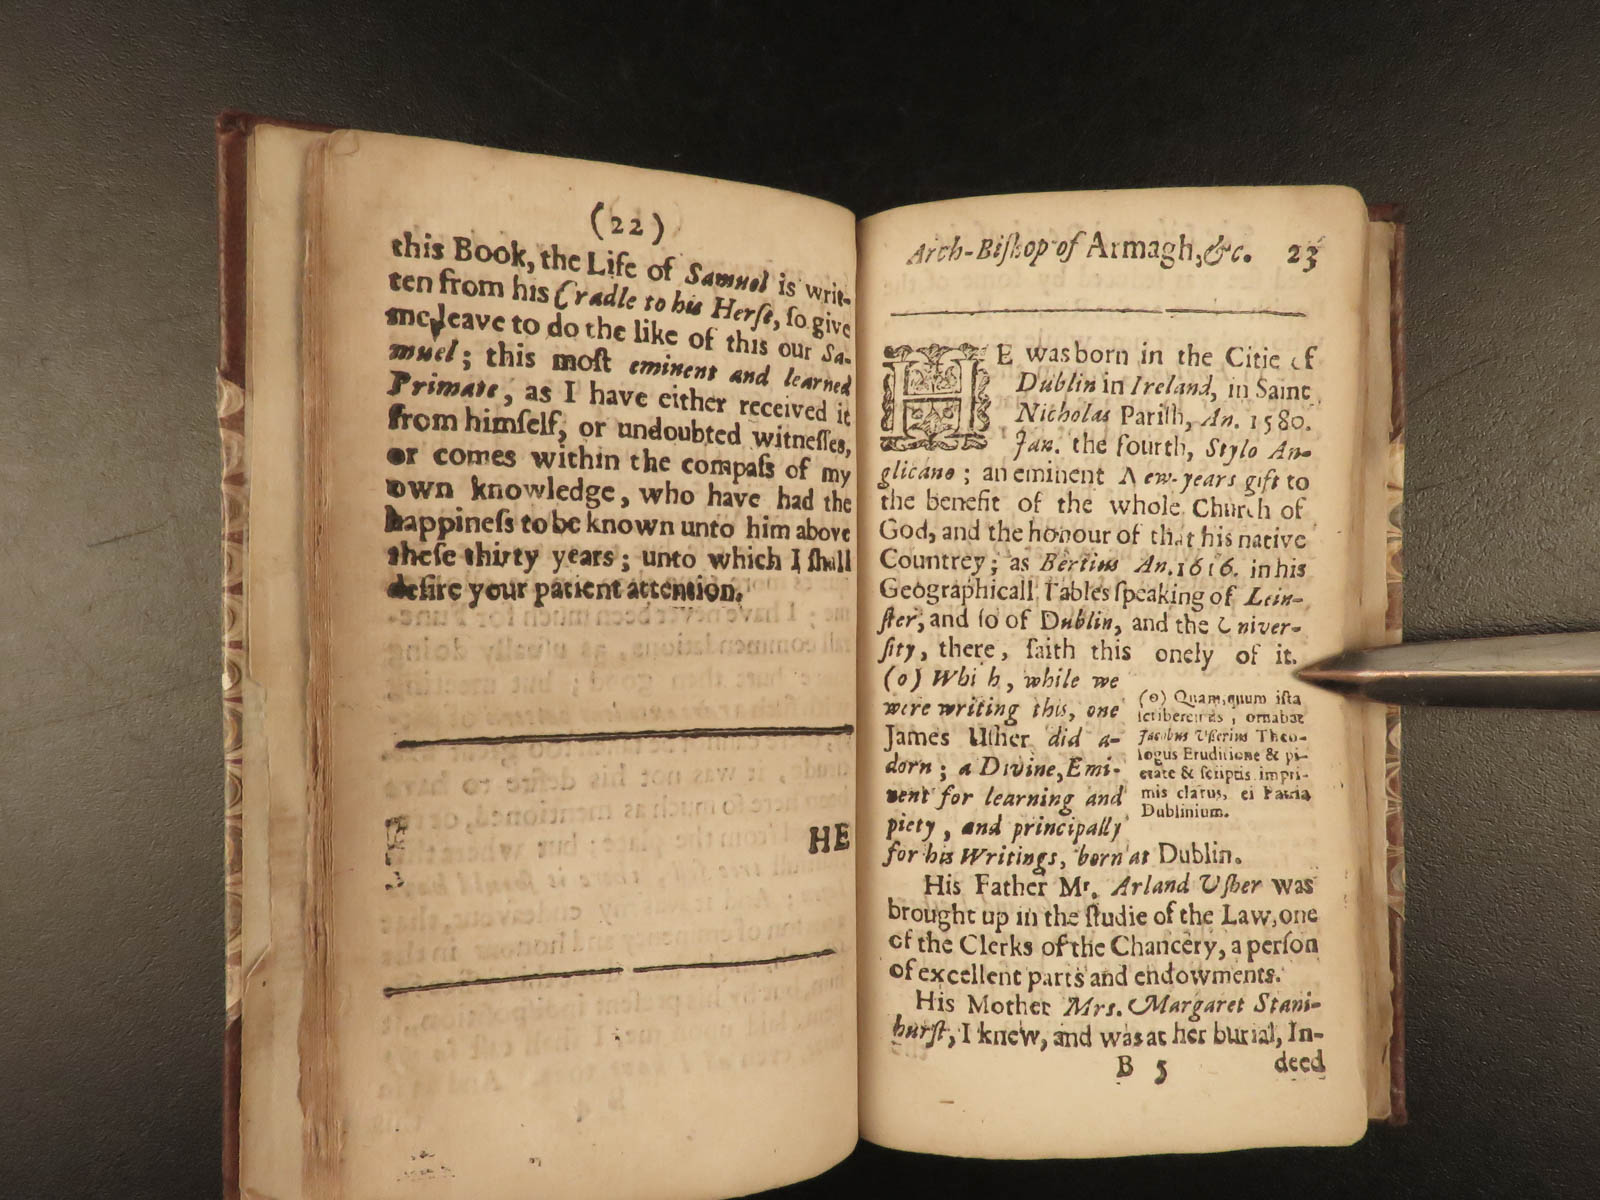 (22)
this Book, the Life of Samuel is writ-
ten from his Cradle to his Herſt, ſo give
me leave to do the like of this our Sa-
muel; this moſt eminent and learned
Primate, as I have either received it
from himſelf, or undoubted witneſſes,
or comes within the compaſs of my
own knowledge, who have had the
happineſs to be known unto him above
theſe thirty years; unto which I ſhall
deſire your patient attention.
HE
Arch-Biſhop of Armagh, &c. 23
HE was born in the Citie of
Dublin in Ireland, in Saint
Nicholas Pariſh, An. 1580.
Jan. the fourth, Stylo An-
glicano; an eminent New-years gift to
the benefit of the whole Church of
God, and the honour of that his native
Countrey; as Bertius An. 1616. in his
Geographicall Tables ſpeaking of Lein-
ſter, and ſo of Dublin, and the Univer-
ſity, there, ſaith this onely of it.
(o) Which, while we
were writing this, one
James Uſher did a-
dorn; a Divine, Emi-
nent for learning and
piety, and principally
for his Writings, born at Dublin.
(o) Quam, quum iſta
ſcriberemus, ornabat
Jacobus Uſſerius Theo-
logus Eruditione & pi-
etate & ſcriptis impri-
mis clarus, ei Patria
Dublinium.
His Father Mr. Arland Uſher was
brought up in the ſtudie of the Law, one
of the Clerks of the Chancery, a perſon
of excellent parts and endowments.
His Mother Mrs. Margaret Stani-
hurſt, I knew, and was at her burial, In-
B 5 deed